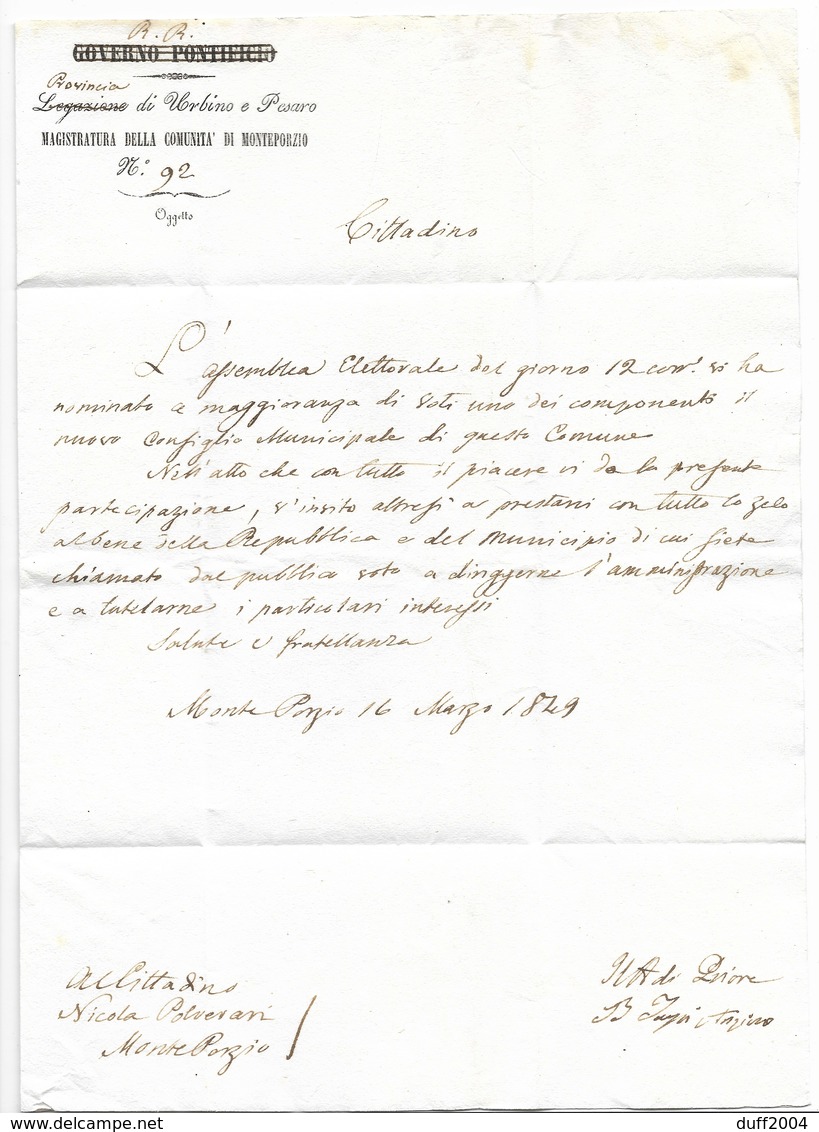 R. R.
GOVERNO PONTIFICIO
Provincia
Legazione di Urbino e Pesaro
MAGISTRATURA DELLA COMUNITA' DI MONTEPORZIO
N.º 92
Oggetto
Cittadino
L'assemblea Elettorale del giorno 12 corr.e vi ha
nominato a maggioranza di voti uno dei componenti il
nuovo Consiglio Municipale di questo Comune
Nell'atto che con tutto il piacere vi do la presente
partecipazione, v'invito altresì a prestarvi con tutto lo zelo
al bene della Repubblica e del Municipio di cui siete
chiamato dal pubblico voto a diriggerne l'amministrazione
e a tutelarne i particolari interessi
Salute e fratellanza
Monte Porzio 16 Marzo 1849
Al Cittadino
Nicola Polverari
Monte Porzio
Priore
B
www.delcampe.net
duff2004